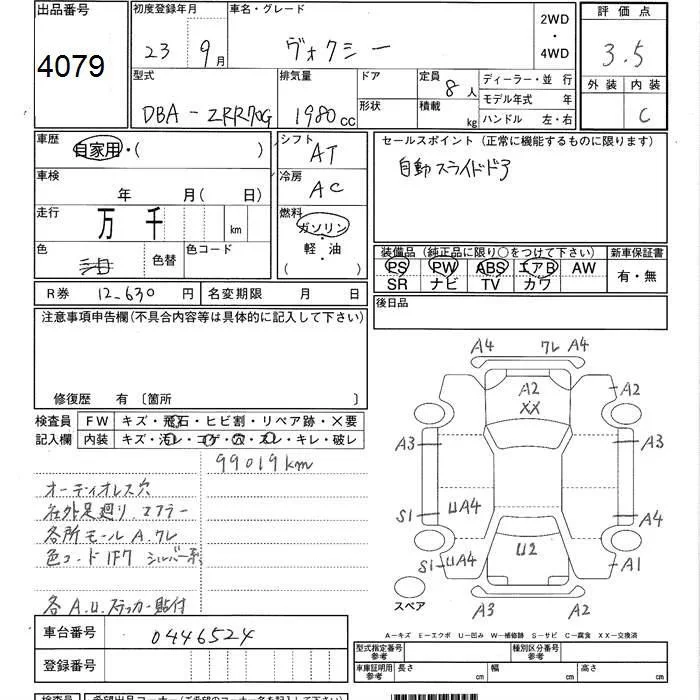 出品番号
4079
初度登録年月
23 9月
車名・グレード
ヴォクシー
2WD
・
4WD
評価点
3.5
外装 内装
C
型式
DBA-ZRR70G
排気量
1980cc
ドア
形状
定員 8人
積載 kg
ディーラー・並行
モデル年式 年
ハンドル 左・右
車歴
自家用・( )
車検
年 月(日)
走行
万 千 km
色
色替
色コード
シフト
AT
冷房
AC
燃料
ガソリン
軽・油
( )
セールスポイント(正常に機能するものに限ります)
自動スライドドア
装備品(純正品に限り○をつけて下さい)
PS PW ABS エアB AW
SR ナビ TV カワ
新車保証書
有・無
R券 12-630円
名変期限 月 日
後日品
注意事項申告欄(不具合内容等は具体的に記入して下さい)
修復歴 有〔箇所 〕
検査員
記入欄
FW キズ・飛石・ヒビ割・リペア跡・×要
内装 キズ・汚レ・コゲ・穴・スレ・キレ・破レ
99019km
オーディオレス穴
社外足廻り.マフラー
各所モールA.ワレ
色コード1F7 シルバー系
各A.U.ステッカー貼付
A4 ワレA4
A2
XX
A2
A3
A3
S1
UA4
A4
S1
UA4
U2
A1
A3 A2
スペア
A-キズ E-エクボ U-凹み W-補修跡 S-サビ C-腐食 XX-交換済
車台番号
0446524
登録番号
型式指定番号
参考
種別区分番号
参考
車庫証明用
参考
長さ cm 幅 cm 高さ cm
検査員
希望出品コーナー(ご希望のコーナー名をご記入下さい)